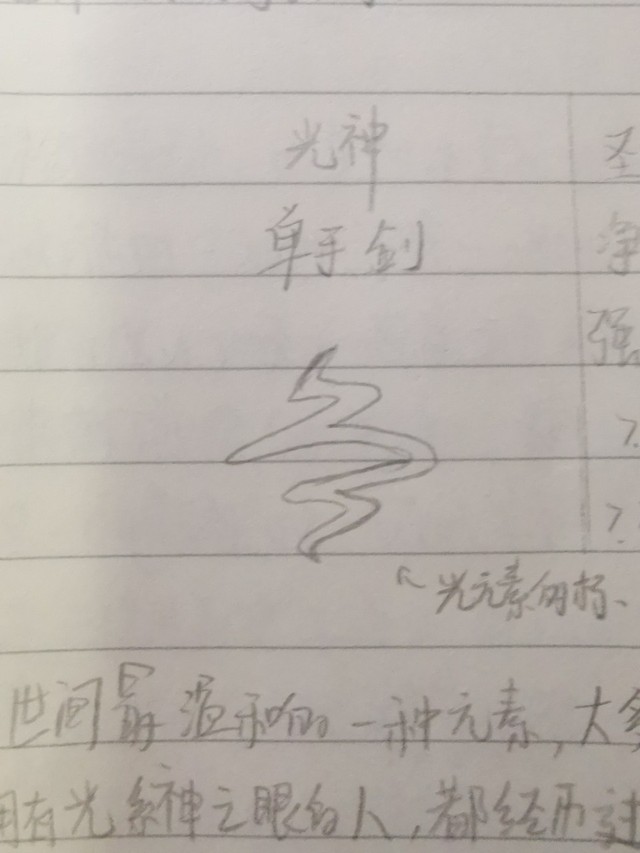 光神
圣
单手剑
净
强
?.
?.
光元素的标、
世间最温和的一种元素，大多
拥有光系神之眼的人，都经历过